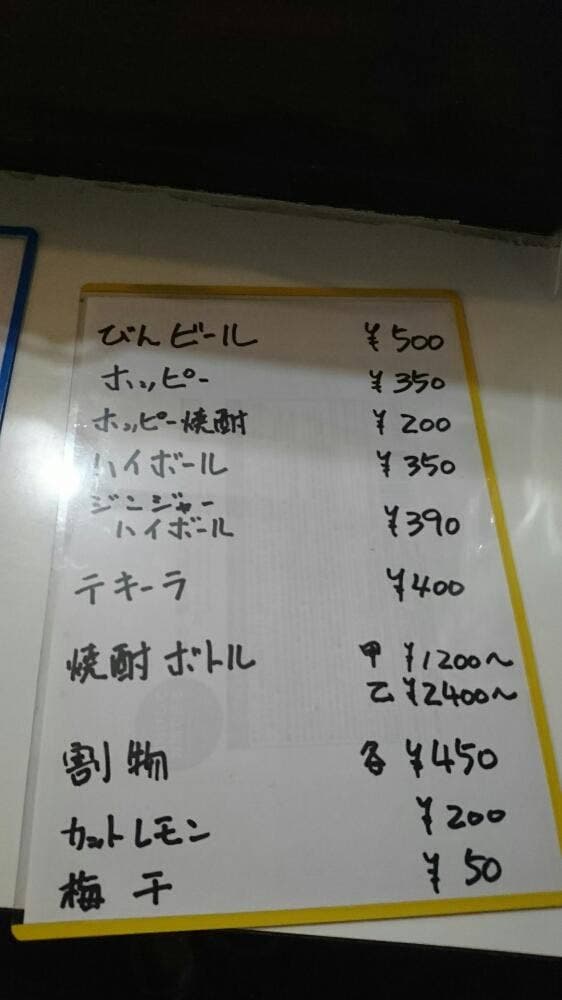 びんビール ¥500
ホッピー ¥350
ホッピー焼酎 ¥200
ハイボール ¥350
ジンジャー
ハイボール ¥390
テキーラ ¥400
焼酎ボトル 甲 ¥1200〜
乙 ¥2400〜
割物 各 ¥450
カットレモン ¥200
梅干 ¥50